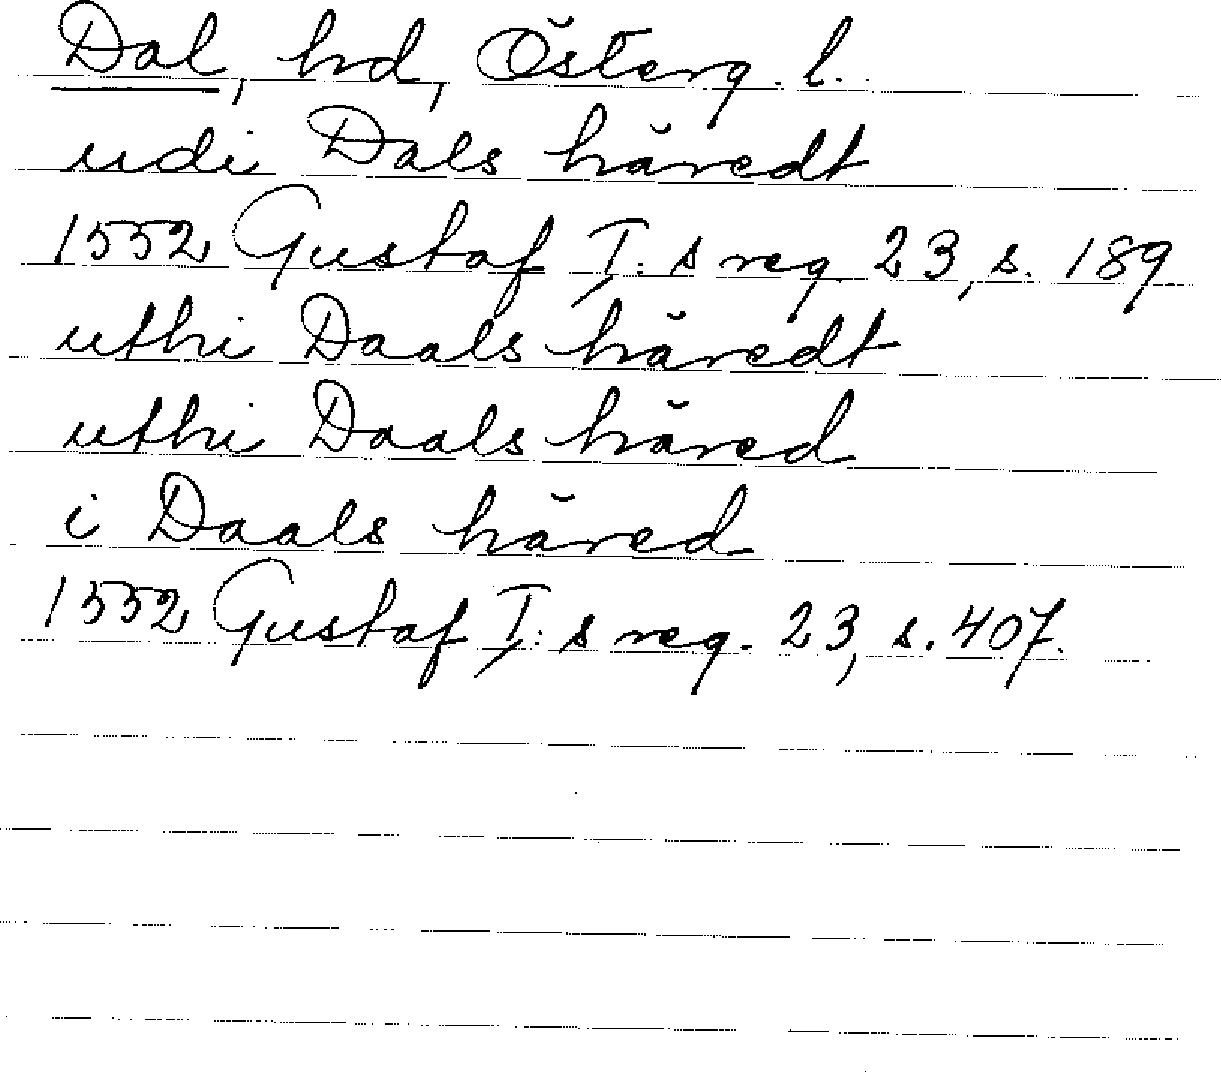 Dal, hd, Österg. l.
udi Dals häredt
1552 Gustaf I:s reg 23, s. 189
uthi Daals häredt
uthi Daals häred
i Daals häred
1552 Gustaf I:s reg. 23, s. 407.